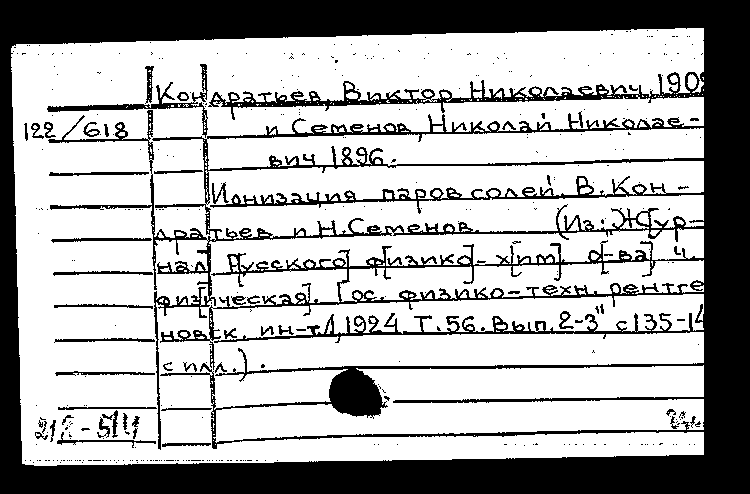 Кондратьев, Виктор Николаевич, 190
122/618 и Семенов, Николай Николае-
вич, 1896.
Ионизация паров солей. В. Кон-
дратьев и Н. Семенов. (Из: Ж[ур-
нал] Русского] физико]-х[им]. о[-ва], ч.
физ[ическая]. Гос. физико-техн. рентге
новск. ин-т. Л, 1924. Т. 56. Вып. 2-3", с 135-14
с илл.).
212-514